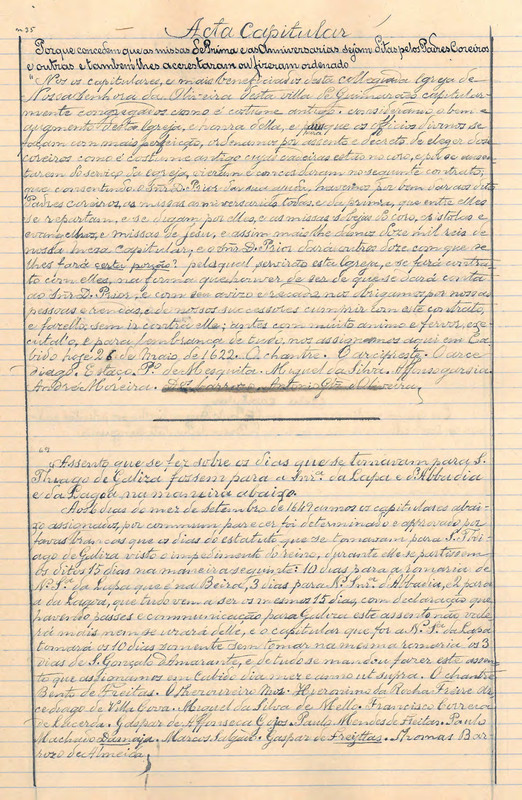 nº 35
Acta Capitular
Porque concedem que as missas de Prima e as Anniversarias sejam ditas pelos Padres Coreiros
e outras e tambem lhes accrestaram ou fizeram ordenado
"Nos os capitulares, e mais beneficiados desta collegiada Igreja de
Nossa Senhora da Oliveira desta villa de Guimarães capitular-
mente congregados como é custume antigo. considerando o bem e
augmento desta Igreja, e honra della, e que os officios divinos se
façam com mais perfeição, ordenamos por assento e decreto de eleger doze
coreiros como é costume antigo cujas cadeiras estão no coro, e por se
taram do serviço da Igreja, vieram e concederam no seguinte contrato,
que consentindo o Snr D. Prior dar sua ajuda, havemos por bem dar aos ditos
Padres coreiros, as missas anniversarias todas, e da prima, que entre elles
se repartam, e se digam por elles, e as missas do coro, epistolas e
evangelhos, e missas de Jesus, e assim mais lhe damos doze mil reis de
nossa mesa capitular, e o Snr D. Prior dará outros doze com que se
lhes fará certa porção? pelos quaes servirão esta Igreja, e se fará contra-
to com elles, na forma que houver de ser de que se dará conta
ao Snr D. Prior, e com seu aviso e recado nos obrigamos por nossas
pessoas e rendas, e de nossos successores cumprir com este contrato,
e fazello sem ir contra elle; antes com muito animo e fervor, exe-
cutal-o, e para lembrança de tudo, nos assignamos aqui em Ca-
bido hoje 26 de Maio, de 1622. O chantre. O arcipreste. O arce
diago. Estaço. Pº de Mesquita. Miguel da Silva. Affonso garsia.
André Moreira. Antonio Oliveira,
"Assento que se fez sobre os dias que se tomavam para S.
Thiago de Galiza fossem para a Snrª da Lapa e d'Abbadia
e da Lagoa na maneira abaixo.
Aos 6 dias do mez de Setembro de 1642 annos os capitulares abai-
xo assignados, por commum parecer foi determinado e approvado por
favas brancas que os dias do estatuto que se tomavam para S. Thi-
ago de Galiza visto o impedimento do reino, durante elle se partissem
os ditos 15 dias na maneira seguinte: 10 dias para a romaria de
Nª Srª da Lapa que é na Beira, 3 dias para Nª Snrª d'Abbadia, e 2 para
a da Lagoa, que tudo vem a ser os mesmos 15 dias, com declaração que
havendo passes e communicação para Galiza este assento não vale-
rá mais nem se uzará delle, e o capitular que for a Nª Srª da Lapa
tomará os 10 dias somente sem tomar na mesma romaria os 3
dias de S. Gonçalo d'Amarante, e de tudo se mandou fazer este assen-
to que assignamos em cabido dia mez e anno ut supra. O chantre
Bento de Freitas. O thesoureiro mor. Hieronimo da Rocha Freire. Ar-
cediago de Villa Cova. Miguel da Silva de Mello. Francisco Correia
de Lacerda. Gaspar de Affonseca Goes. Paulo Mendes de Freitas. Paulo
Machado Damaja. Marcos Salgado. Gaspar de Freyttas. Thomas Bar-
rozo de Almeida,